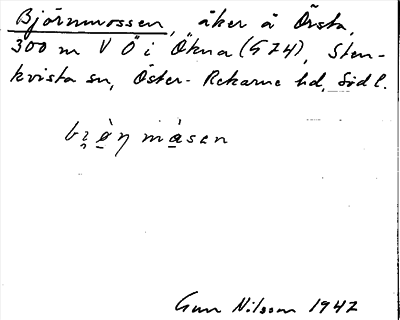 Björnmossen, åker å Örsta,
300 m V Ö i Ökna (G74), Sten-
kvista sn, Öster-Rekarne hd, Södl.
måsen
Gun Nilsson 1947